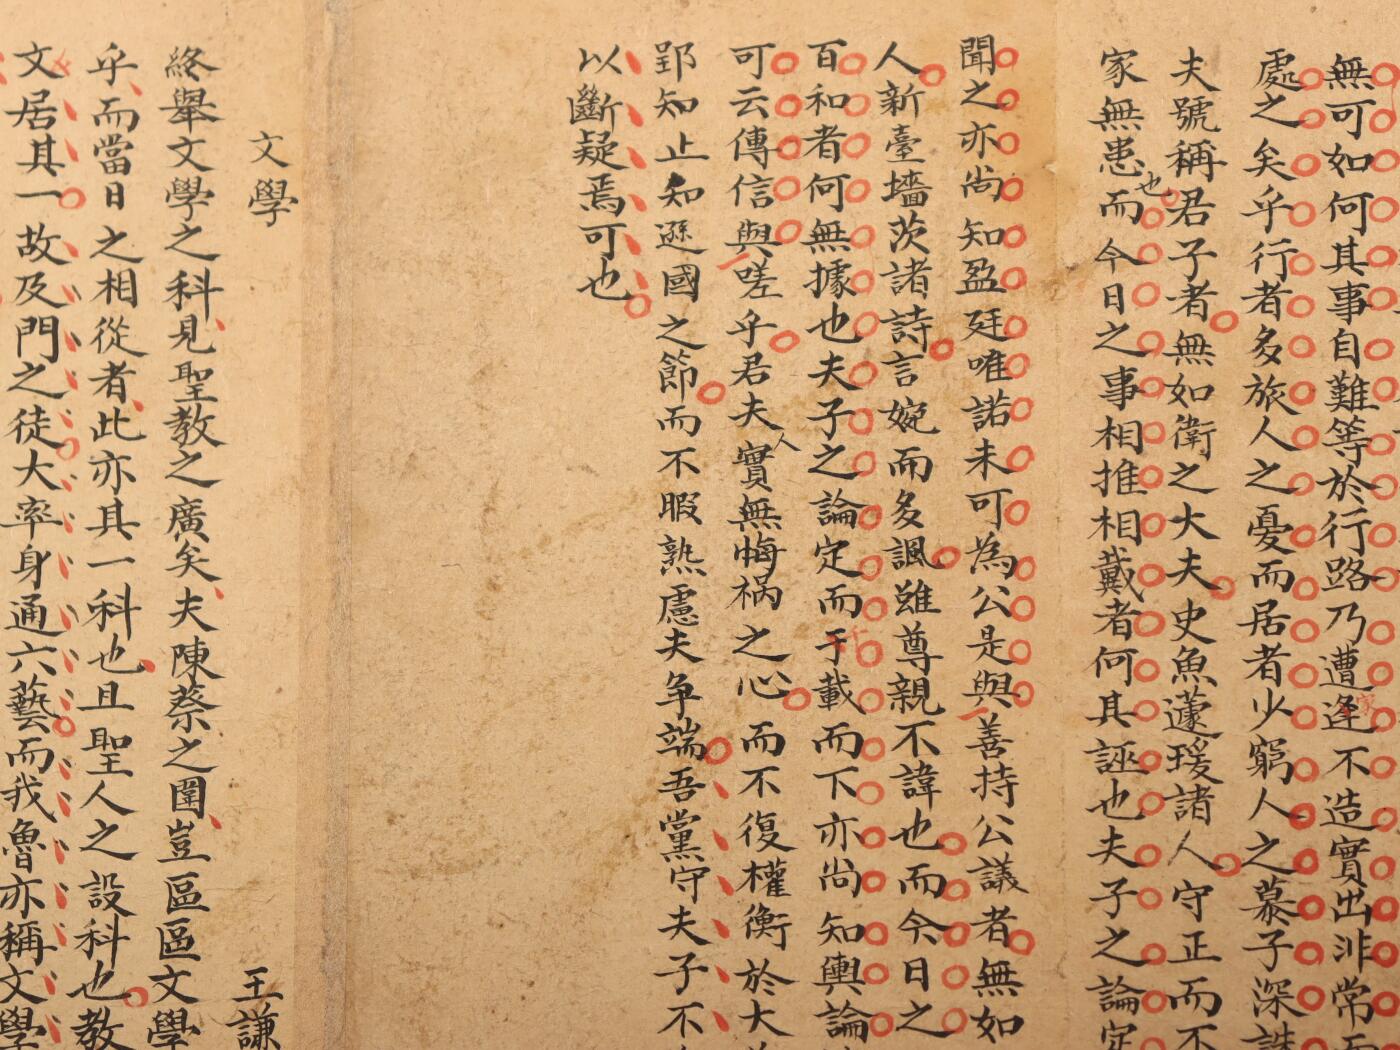 無可如何其事自難等於行路乃遭逢不造實出非常
處之矣乎行者多旅人之憂而居者少窮人之慕子深誅
夫號稱君子者無如衛之大夫史魚蘧瑗諸人守正而不
家無患而今日之事相推相戴者何其誣也夫子之論定
也
聞之亦尚知盈廷唯諾未可為公是與善持公議者無如
人新臺墻茨諸詩言婉而多諷雖尊親不諱也而今日之
百和者何無據也夫子之論定而千載而下亦尚知輿論
可云傳信與嗟乎君夫實無悔禍之心而不復權衡於大
人
郢知止知遜國之節而不暇熟慮夫爭端吾黨守夫子不
以斷疑焉可也
文學
王謙
終舉文學之科見聖教之廣矣夫陳蔡之圍豈區區文學
乎而當日之相從者此亦其一科也且聖人之設科也教
文居其一故及門之徒大率身通六藝而我魯亦稱文學